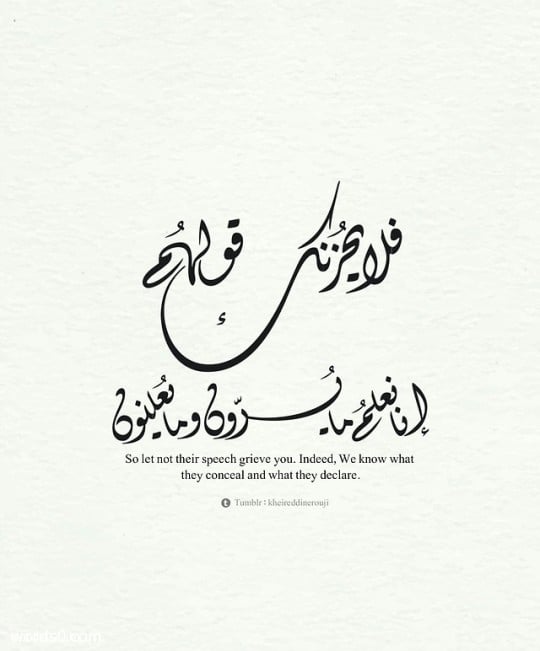 فلا يحزنك قولهم
إنا نعلم ما يسرّون وما يعلنون
So let not their speech grieve you. Indeed, We know what
they conceal and what they declare.
Tumblr : kheireddinerouji